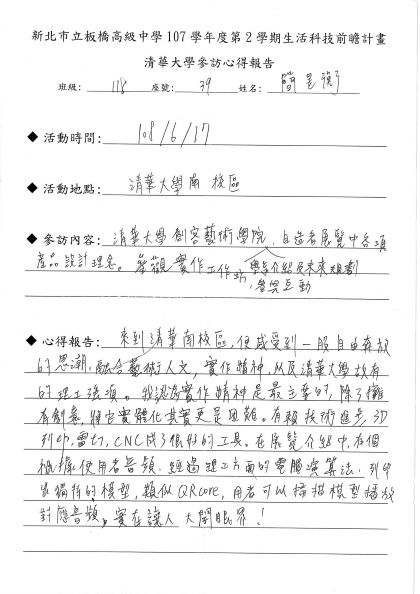 新北市立板橋高級中學 107 學年度第 2 學期生活科技前瞻計畫
清華大學參訪心得報告
班級: 118 座號: 39 姓名: 簡
◆ 活動時間: 108/6/17
◆ 活動地點: 清華大學南校區
◆ 參訪內容: 清華大學創客藝術學院,自造者展覽中各項
產品設計理念。參觀實作工作坊 學系介紹及未來規劃
參與互動
◆ 心得報告: 來到清華南校區,便感受到一股自由奔放
的思潮,融合藝術人文,實作精神,以及清華大學故有
的理工強項。我認為實作精神是最主要的,除了擁
有創意,將它實體化其實更是困難。有賴技術進步,3D
列印,雷切,CNC成了很好的工具。在展覽介紹中,有個
根據使用者音頻,經過理工方面的電腦演算法,列印
出獨特的模型,類似QRcore,用者可以掃描模型播放
對應音頻,實在讓人大開眼界!